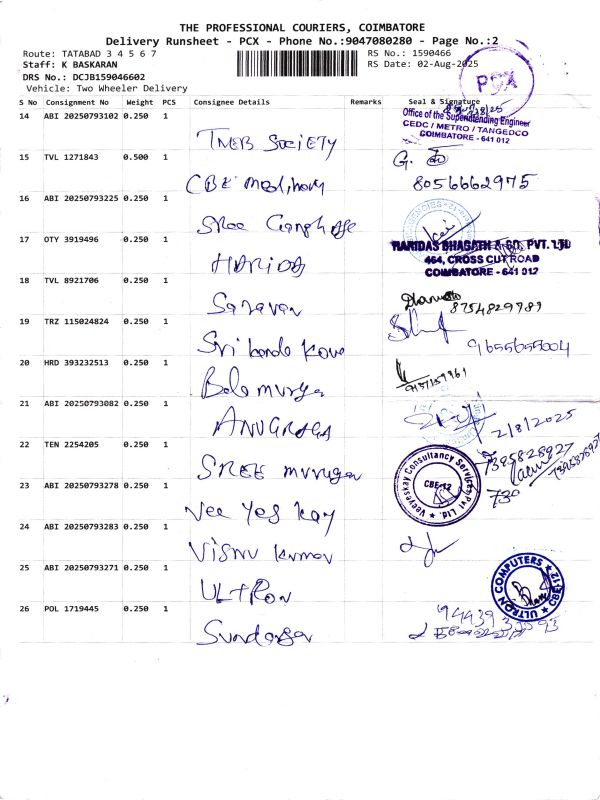 THE PROFESSIONAL COURIERS, COIMBATORE
Delivery Runsheet - PCX - Phone No.:9047080280 - Page No.:2
Route: TATABAD 3 4 5 6 7
RS No.: 1590466
Staff: K BASKARAN
RS Date: 02-Aug-2025
DRS No.: DCJB159046602
Vehicle: Two Wheeler Delivery
PCX
S No Consignment No Weight PCS Consignee Details Remarks Seal & Signature
14 ABI 20250793102 0.250 1
TNEB SOCIETY
Office of the Superintending Engineer
CEDC / METRO / TANGEDCO
COIMBATORE - 641 012
15 TVL 1271843 0.500 1
CBE
8056662975
16 ABI 20250793225 0.250 1
Sree
17 OTY 3919496 0.250 1
HARIDAS
HARIDAS BHAGATH & CO. PVT. LTD
464, CROSS CUT ROAD
COIMBATORE - 641 012
18 TVL 8921706 0.250 1
Saravan
8754829989
19 TRZ 115024824 0.250 1
Sri
9655655004
20 HRD 393232513 0.250 1
Bala muruga
21 ABI 20250793082 0.250 1
ANUGRAGA
2/8/2025
22 TEN 2254205 0.250 1
SREE murugan
7395828927
23 ABI 20250793278 0.250 1
Vee Yes Kay
Veeyeskay Consultancy Services Pvt. Ltd.
CBE-12
730
24 ABI 20250793283 0.250 1
Visnu Kumar
25 ABI 20250793271 0.250 1
ULTRON
ULTRON COMPUTERS
CBE-12
26 POL 1719445 0.250 1
Sundaran